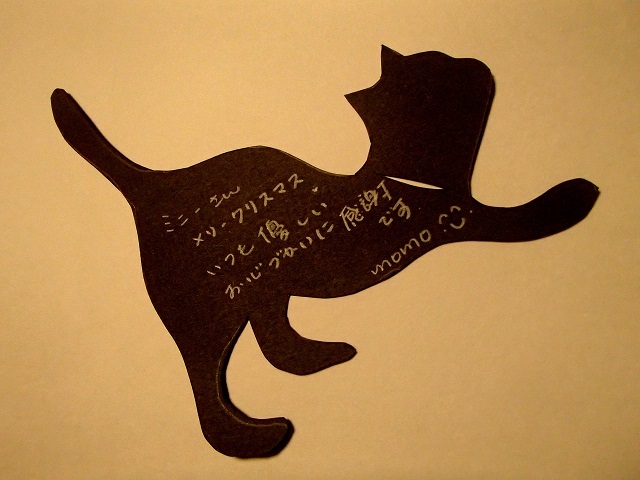 ミニーさん
メリークリスマス。
いつも優しい
お心づかいに感謝
です
momo